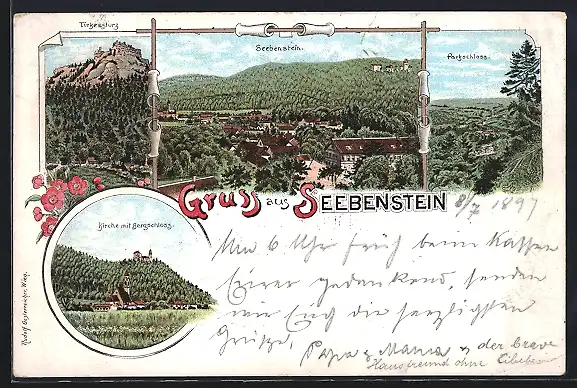 Türkensturz
Seebenstein.
Parkschloss.
Gruss aus SEEBENSTEIN
8/7 1897
Kirche mit Bergschloss.
Rudolf Gosterreicher, Wien.
Um 6 Uhr früh beim Kaffee
Eurer gedenkend, senden
wir Euch die herzlichsten
Grüße, Papa & Mama & der brave
Hausfreund ohne